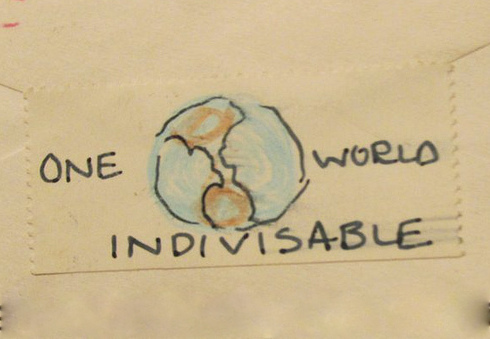 ONE WORLD
INDIVISABLE